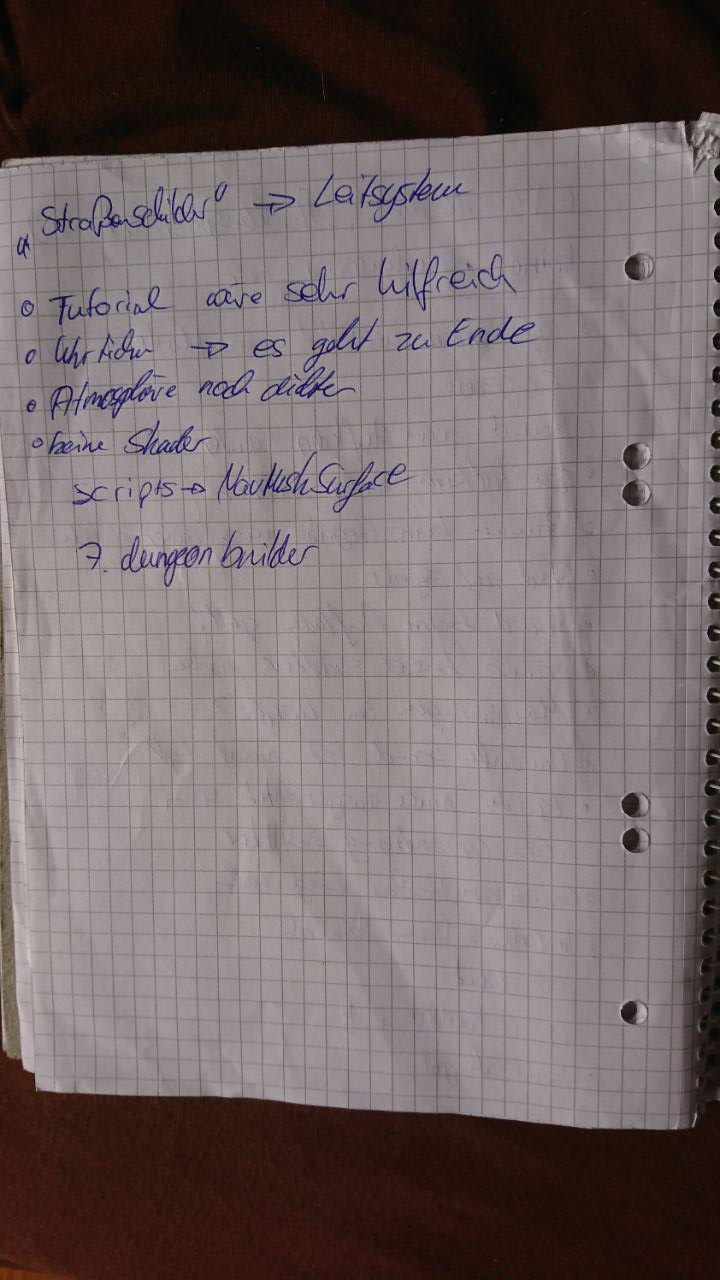 „Straßenschilder" → Leitsystem
○ Tutorial wäre sehr hilfreich
○ → es geht zu Ende
○ Atmosphäre noch dichter
○ keine Shader
scripts → NavMeshSurface
7. dungeon builder